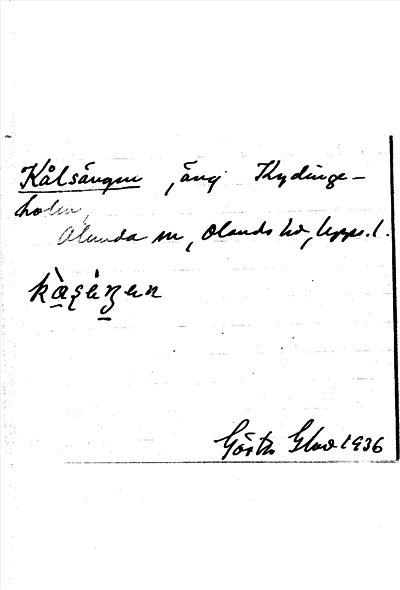 Kålsängen, äng Kydinge-
holm,
Alunda sn, Olands hd, Upps. l.
Gösta 1936